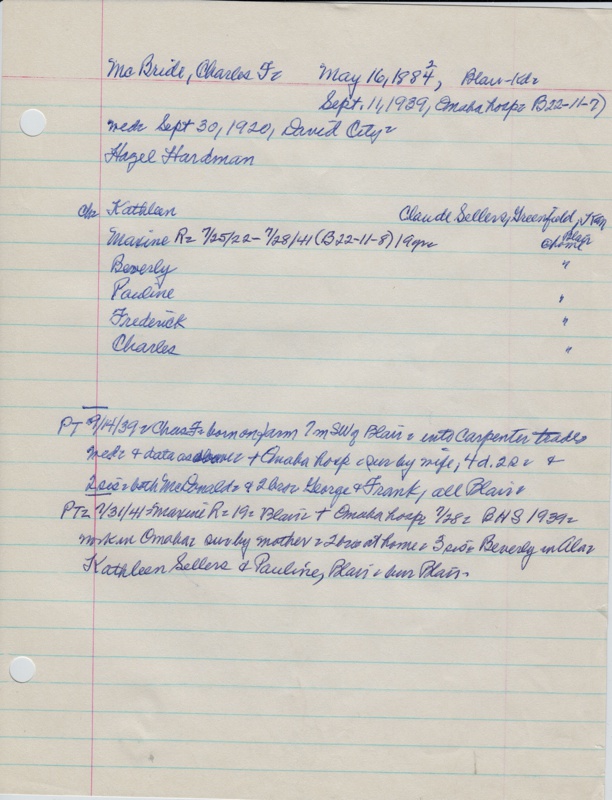 McBride, Charles F= May 16, 1884 2, Blair-Kd=
Sept. 11, 1939, Omaha hosp= B22-11-7)
med= Sept 30, 1920, David City=
Hazel Hardman
ch= Kathleen Claude Sellers, Greenfield,
Maxine R= 7/25/22- 7/28/41 (B22-11-8) 19yr= Blair home
Beverly "
Pauline "
Frederick "
Charles "
PT 9/14/39= Chas F= born on farm 7m SW of Blair= into carpenter trade=
med= & data as above + Omaha hosp= sur by wife, 4d. 2s= &
2 sis= both McDonald= & 2 bro= George & Frank, all Blair=
PT= 7/31/41= Maxine R= 19= Blair= + Omaha hosp= 7/28= BHS 1939=
work in Omaha= sur by mother= 2 bro at home= 3 sis= Beverly in Ala=
Kathleen Sellers & Pauline, Blair= bur Blair=